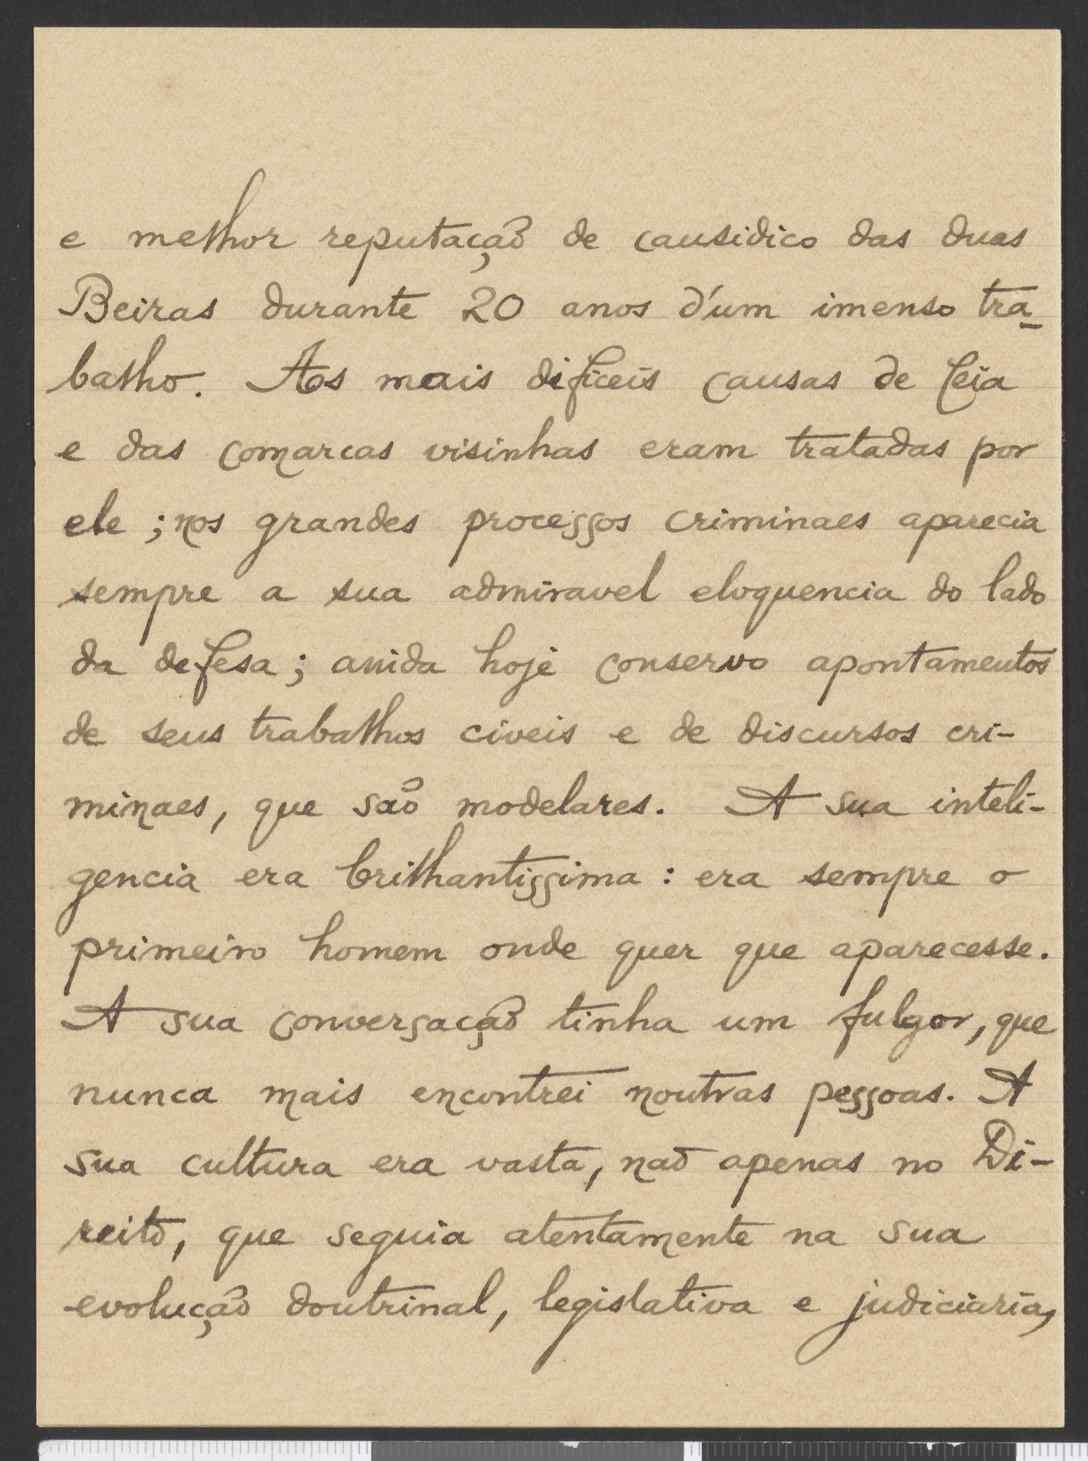 e melhor reputação de causidico das duas
Beiras durante 20 anos d'um imenso tra-
balho. As mais dificeis causas de Ceia
e das comarcas visinhas eram tratadas por
ele; nos grandes processos criminaes aparecia
sempre a sua admiravel eloquencia do lado
da defesa; ainda hoje conservo apontamentos
de seus trabalhos civeis e de discursos cri-
minaes, que são modelares. A sua inteli-
gencia era brilhantissima: era sempre o
primeiro homem onde quer que aparecesse.
A sua conversação tinha um fulgor, que
nunca mais encontrei noutras pessoas. A
sua cultura era vasta, não apenas no Di-
reito, que seguia atentamente na sua
evolução doutrinal, legislativa e judiciaria,